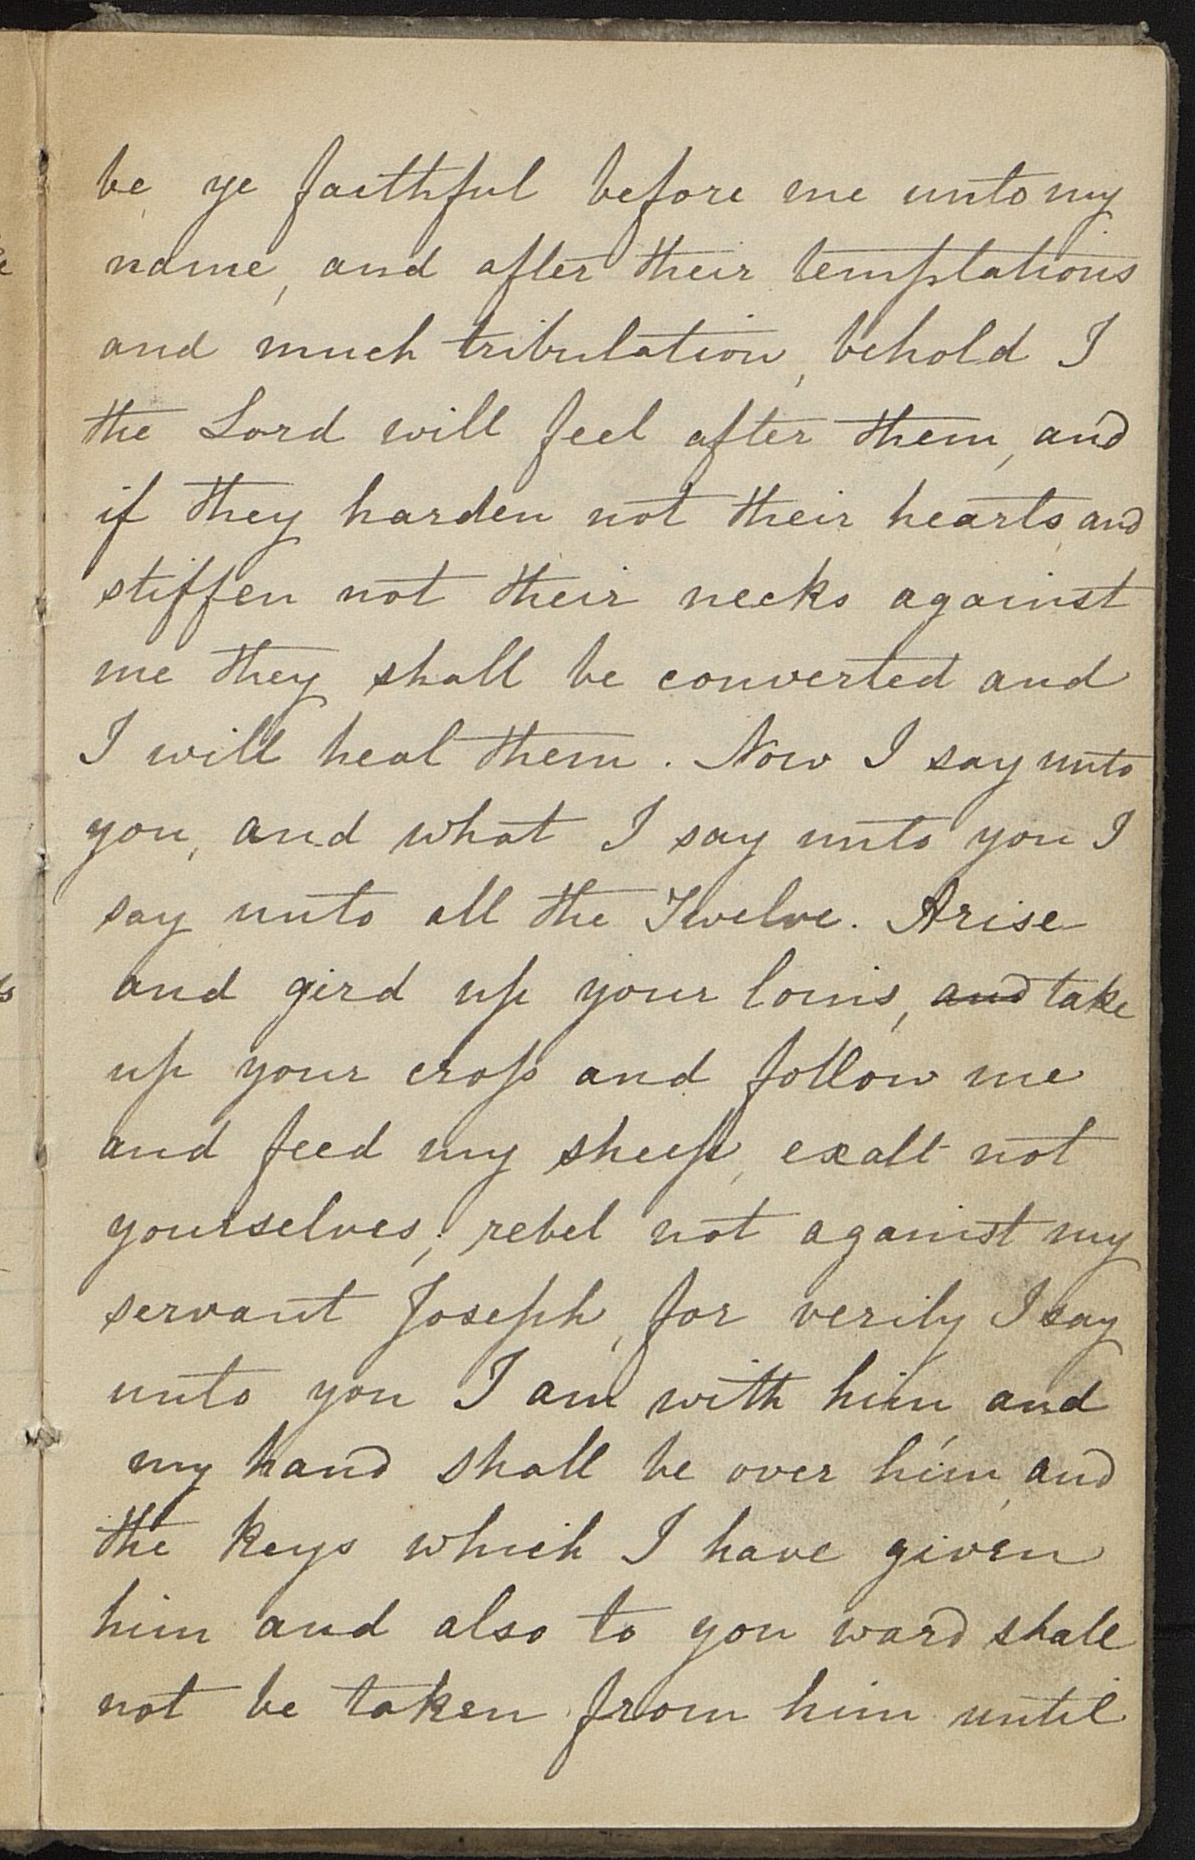 be ye faithful before me unto my
name, and after their temptations
and much tribulation, behold I
the Lord will feel after them, and
if they harden not their hearts, and
stiffen not their necks against
me they shall be converted and
I will heal them. Now I say unto
you, and what I say unto you I
say unto all the Twelve. Arise
and gird up your loins, and take
up your cross and follow me
and feed my sheep, exalt not
yourselves; rebel not against my
servant Joseph, for verily I say
unto you I am with him and
my hand shall be over him, and
the keys which I have given
him and also to you ward shall
not be taken from him until